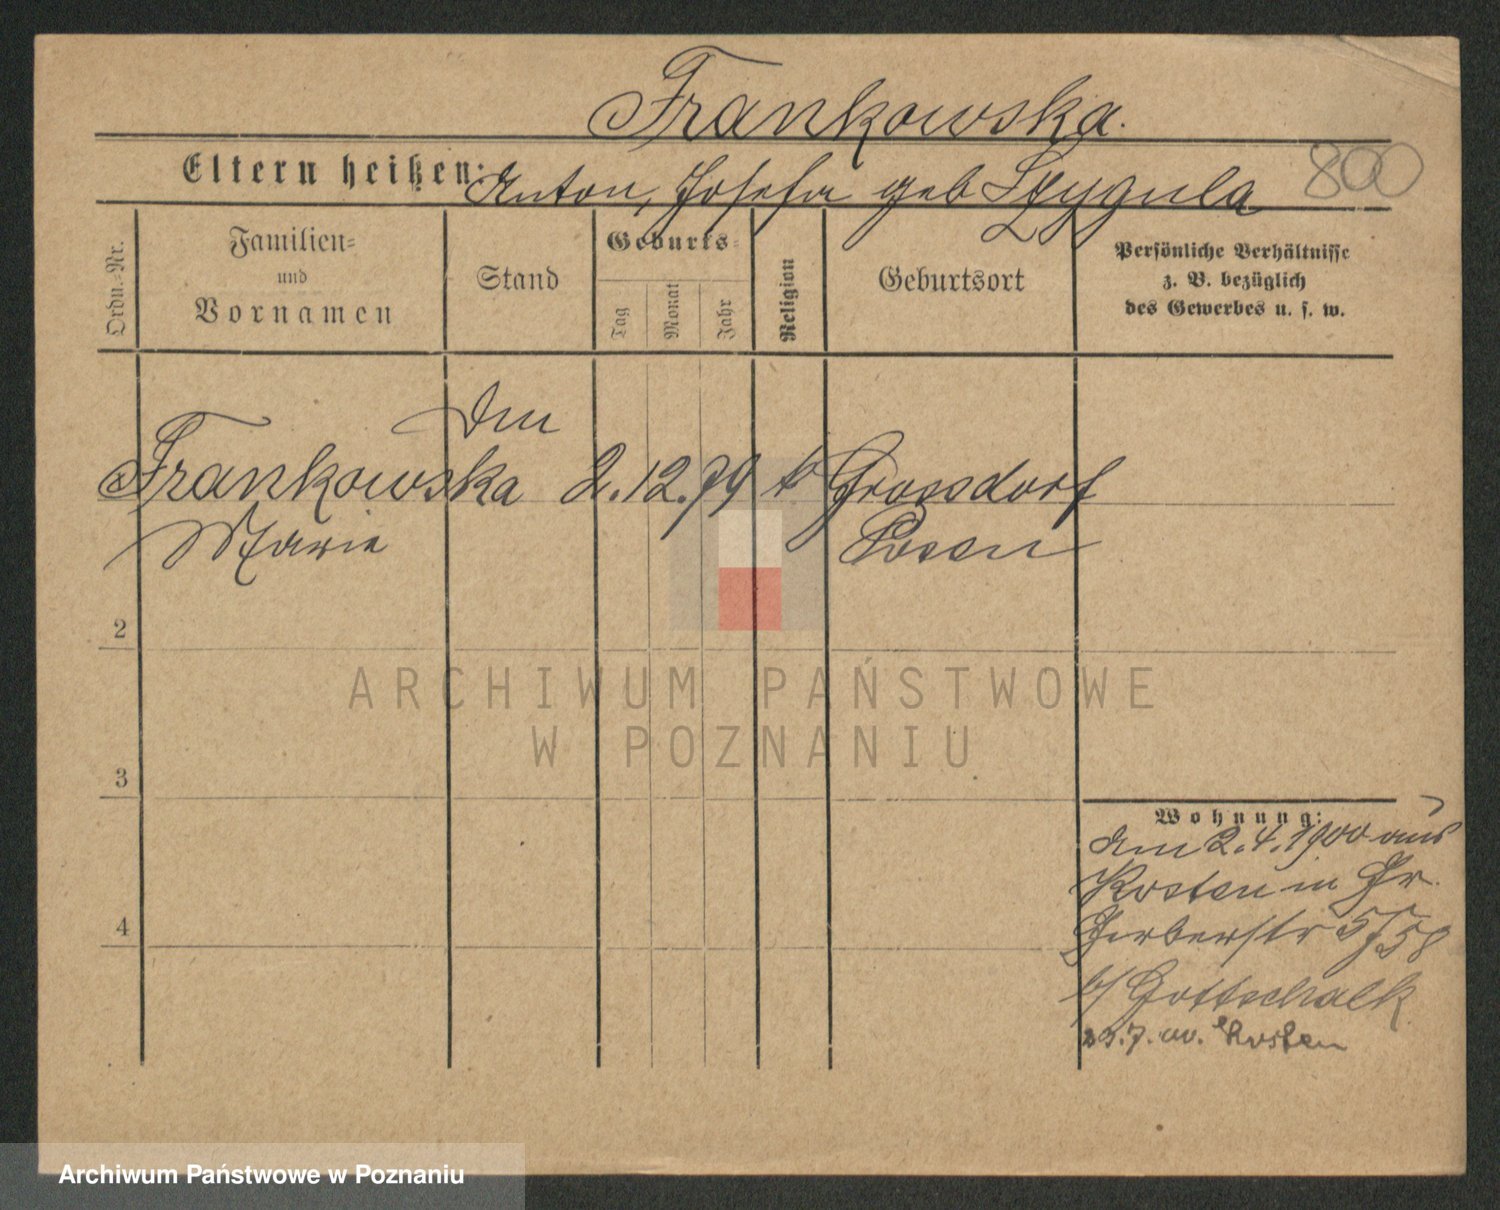 Frankowska.
800
Eltern heißen: Anton, Josefa geb Szygula
Ordn.-Nr.
Familien- und Vornamen
Stand
Geburts-
Tag
Monat
Jahr
Religion
Geburtsort
Persönliche Verhältnisse
z. B. bezüglich
des Gewerbes u. s. w.
Frankowska 2.12.79 k Grossdorf
Marie Posen
2
3
4
Wohnung:
am 2.4.1900 aus
Kosten in Gr.
Gerberstr 57/58
b/ Gottschalk
23.7. Kosten
ARCHIWUM PAŃSTWOWE
W POZNANIU
Archiwum Państwowe w Poznaniu